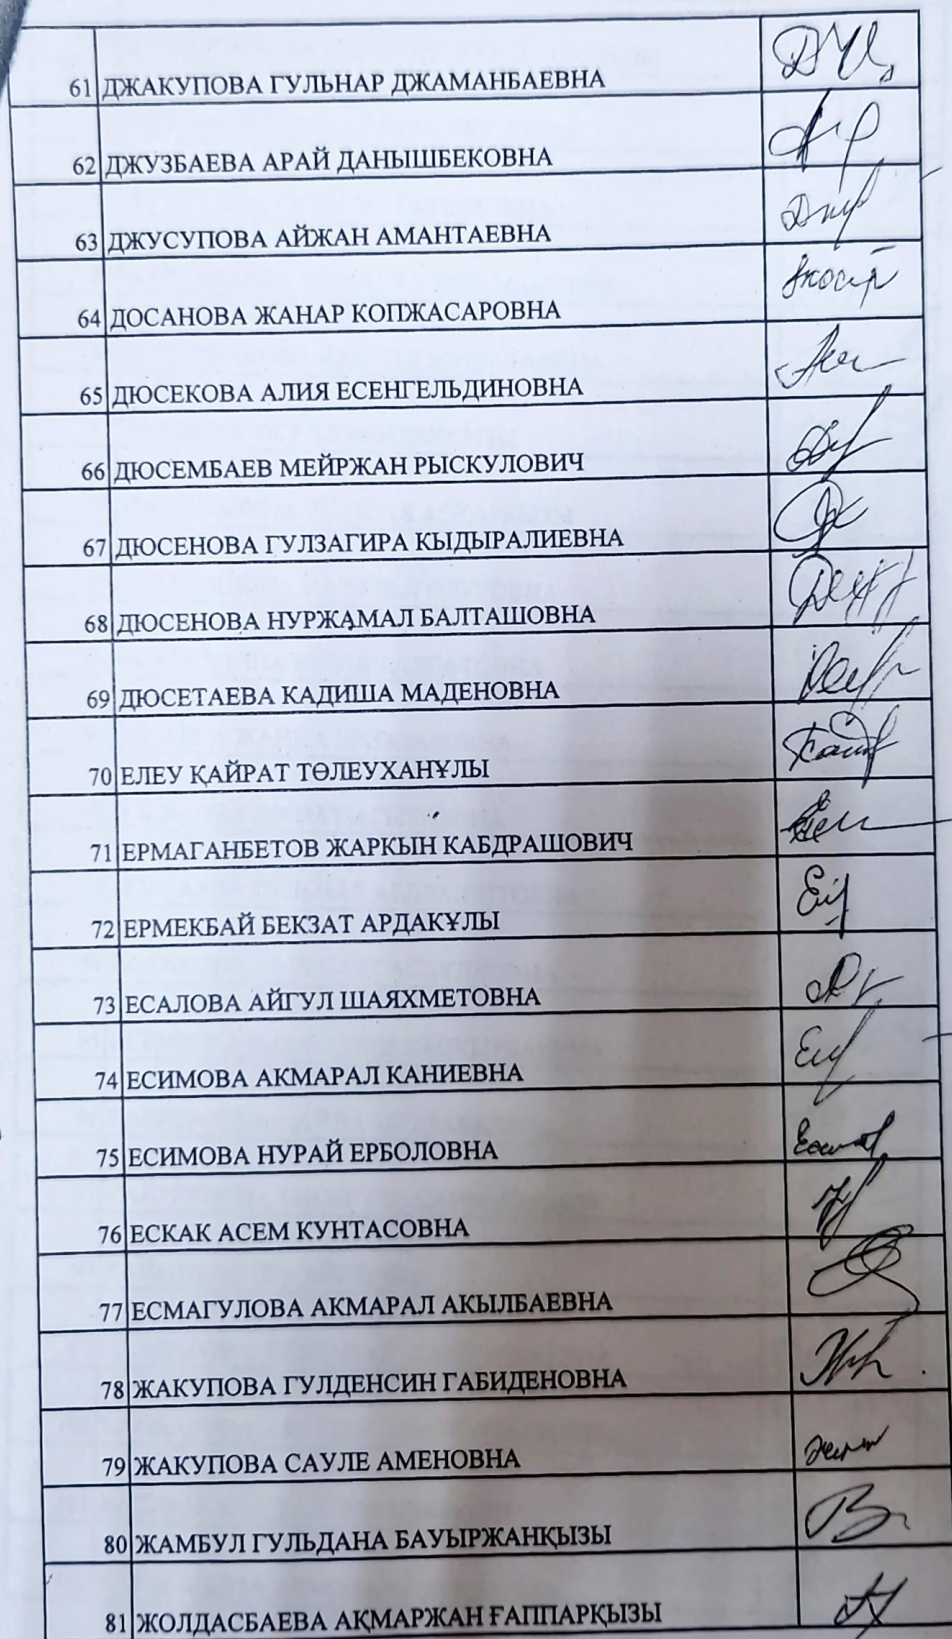 61 ДЖАКУПОВА ГУЛЬНАР ДЖАМАНБАЕВНА
62 ДЖУЗБАЕВА АРАЙ ДАНЫШБЕКОВНА
63 ДЖУСУПОВА АЙЖАН АМАНТАЕВНА
64 ДОСАНОВА ЖАНАР КОПЖАСАРОВНА
65 ДЮСЕКОВА АЛИЯ ЕСЕНГЕЛЬДИНОВНА
66 ДЮСЕМБАЕВ МЕЙРЖАН РЫСКУЛОВИЧ
67 ДЮСЕНОВА ГУЛЗАГИРА КЫДЫРАЛИЕВНА
68 ДЮСЕНОВА НУРЖАМАЛ БАЛТАШОВНА
69 ДЮСЕТАЕВА КАДИША МАДЕНОВНА
70 ЕЛЕУ ҚАЙРАТ ТӨЛЕУХАНҰЛЫ
71 ЕРМАГАНБЕТОВ ЖАРКЫН КАБДРАШОВИЧ
72 ЕРМЕКБАЙ БЕКЗАТ АРДАКҰЛЫ
73 ЕСАЛОВА АЙГУЛ ШАЯХМЕТОВНА
74 ЕСИМОВА АКМАРАЛ КАНИЕВНА
75 ЕСИМОВА НУРАЙ ЕРБОЛОВНА
76 ЕСКАК АСЕМ КУНТАСОВНА
77 ЕСМАГУЛОВА АКМАРАЛ АКЫЛБАЕВНА
78 ЖАКУПОВА ГУЛДЕНСИН ГАБИДЕНОВНА
79 ЖАКУПОВА САУЛЕ АМЕНОВНА
80 ЖАМБУЛ ГУЛЬДАНА БАУЫРЖАНҚЫЗЫ
81 ЖОЛДАСБАЕВА АҚМАРЖАН ҒАППАРҚЫЗЫ